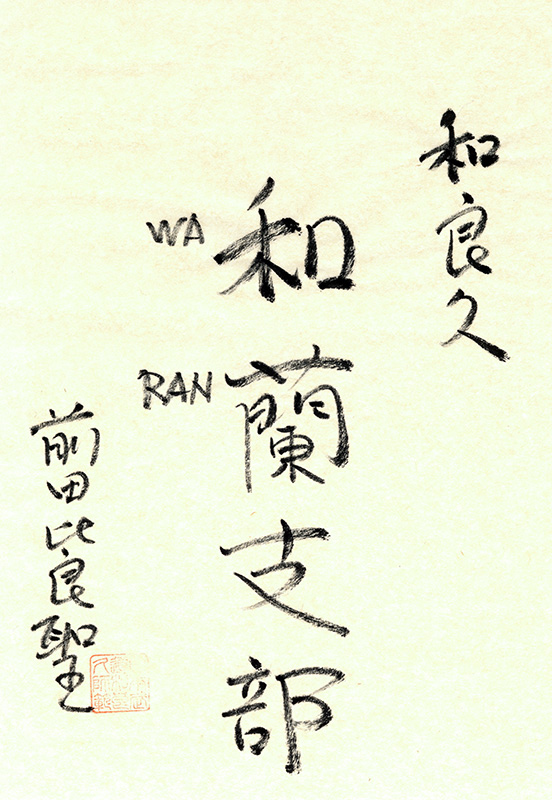 和良久
和蘭支部
WA
RAN
前田比良聖